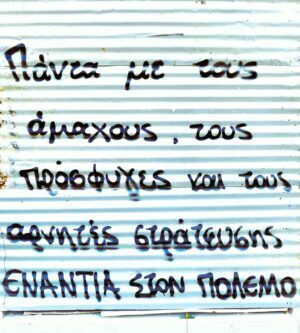 Πάντα με τους
άμαχους, τους
πρόσφυγες και τους
αρνητές στράτευσης
ΕΝΑΝΤΙΑ ΣΤΟΝ ΠΟΛΕΜΟ